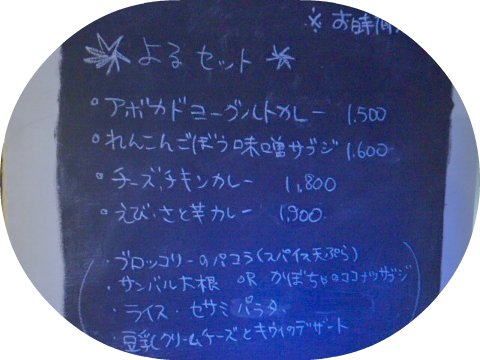 ※ お時間
よるセット
・アボカドヨーグルトカレー 1,500
・れんこんごぼう味噌サブジ 1,600
・チーズチキンカレー 1,800
・えび・さと芋カレー 1,900
・ブロッコリーのパコラ(スパイス天ぷら)
・サンバル大根 OR かぼちゃのココナッツサブジ
・ライス・セサミパラタ
・豆乳クリームチーズとキウイのデザート